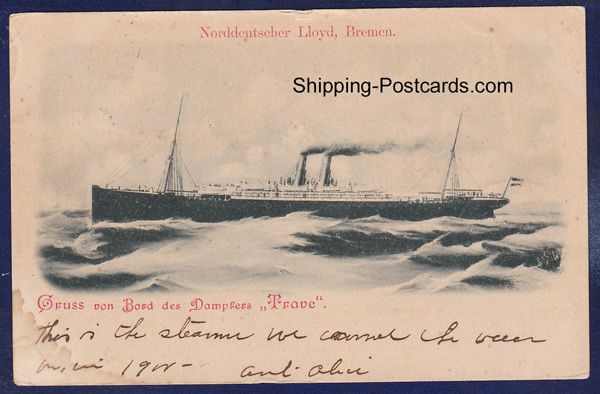 Norddeutscher Lloyd, Bremen.
Shipping-Postcards.com
Gruss von Bord des Dampfers „Trave“.
this is the steamer we the
in 190